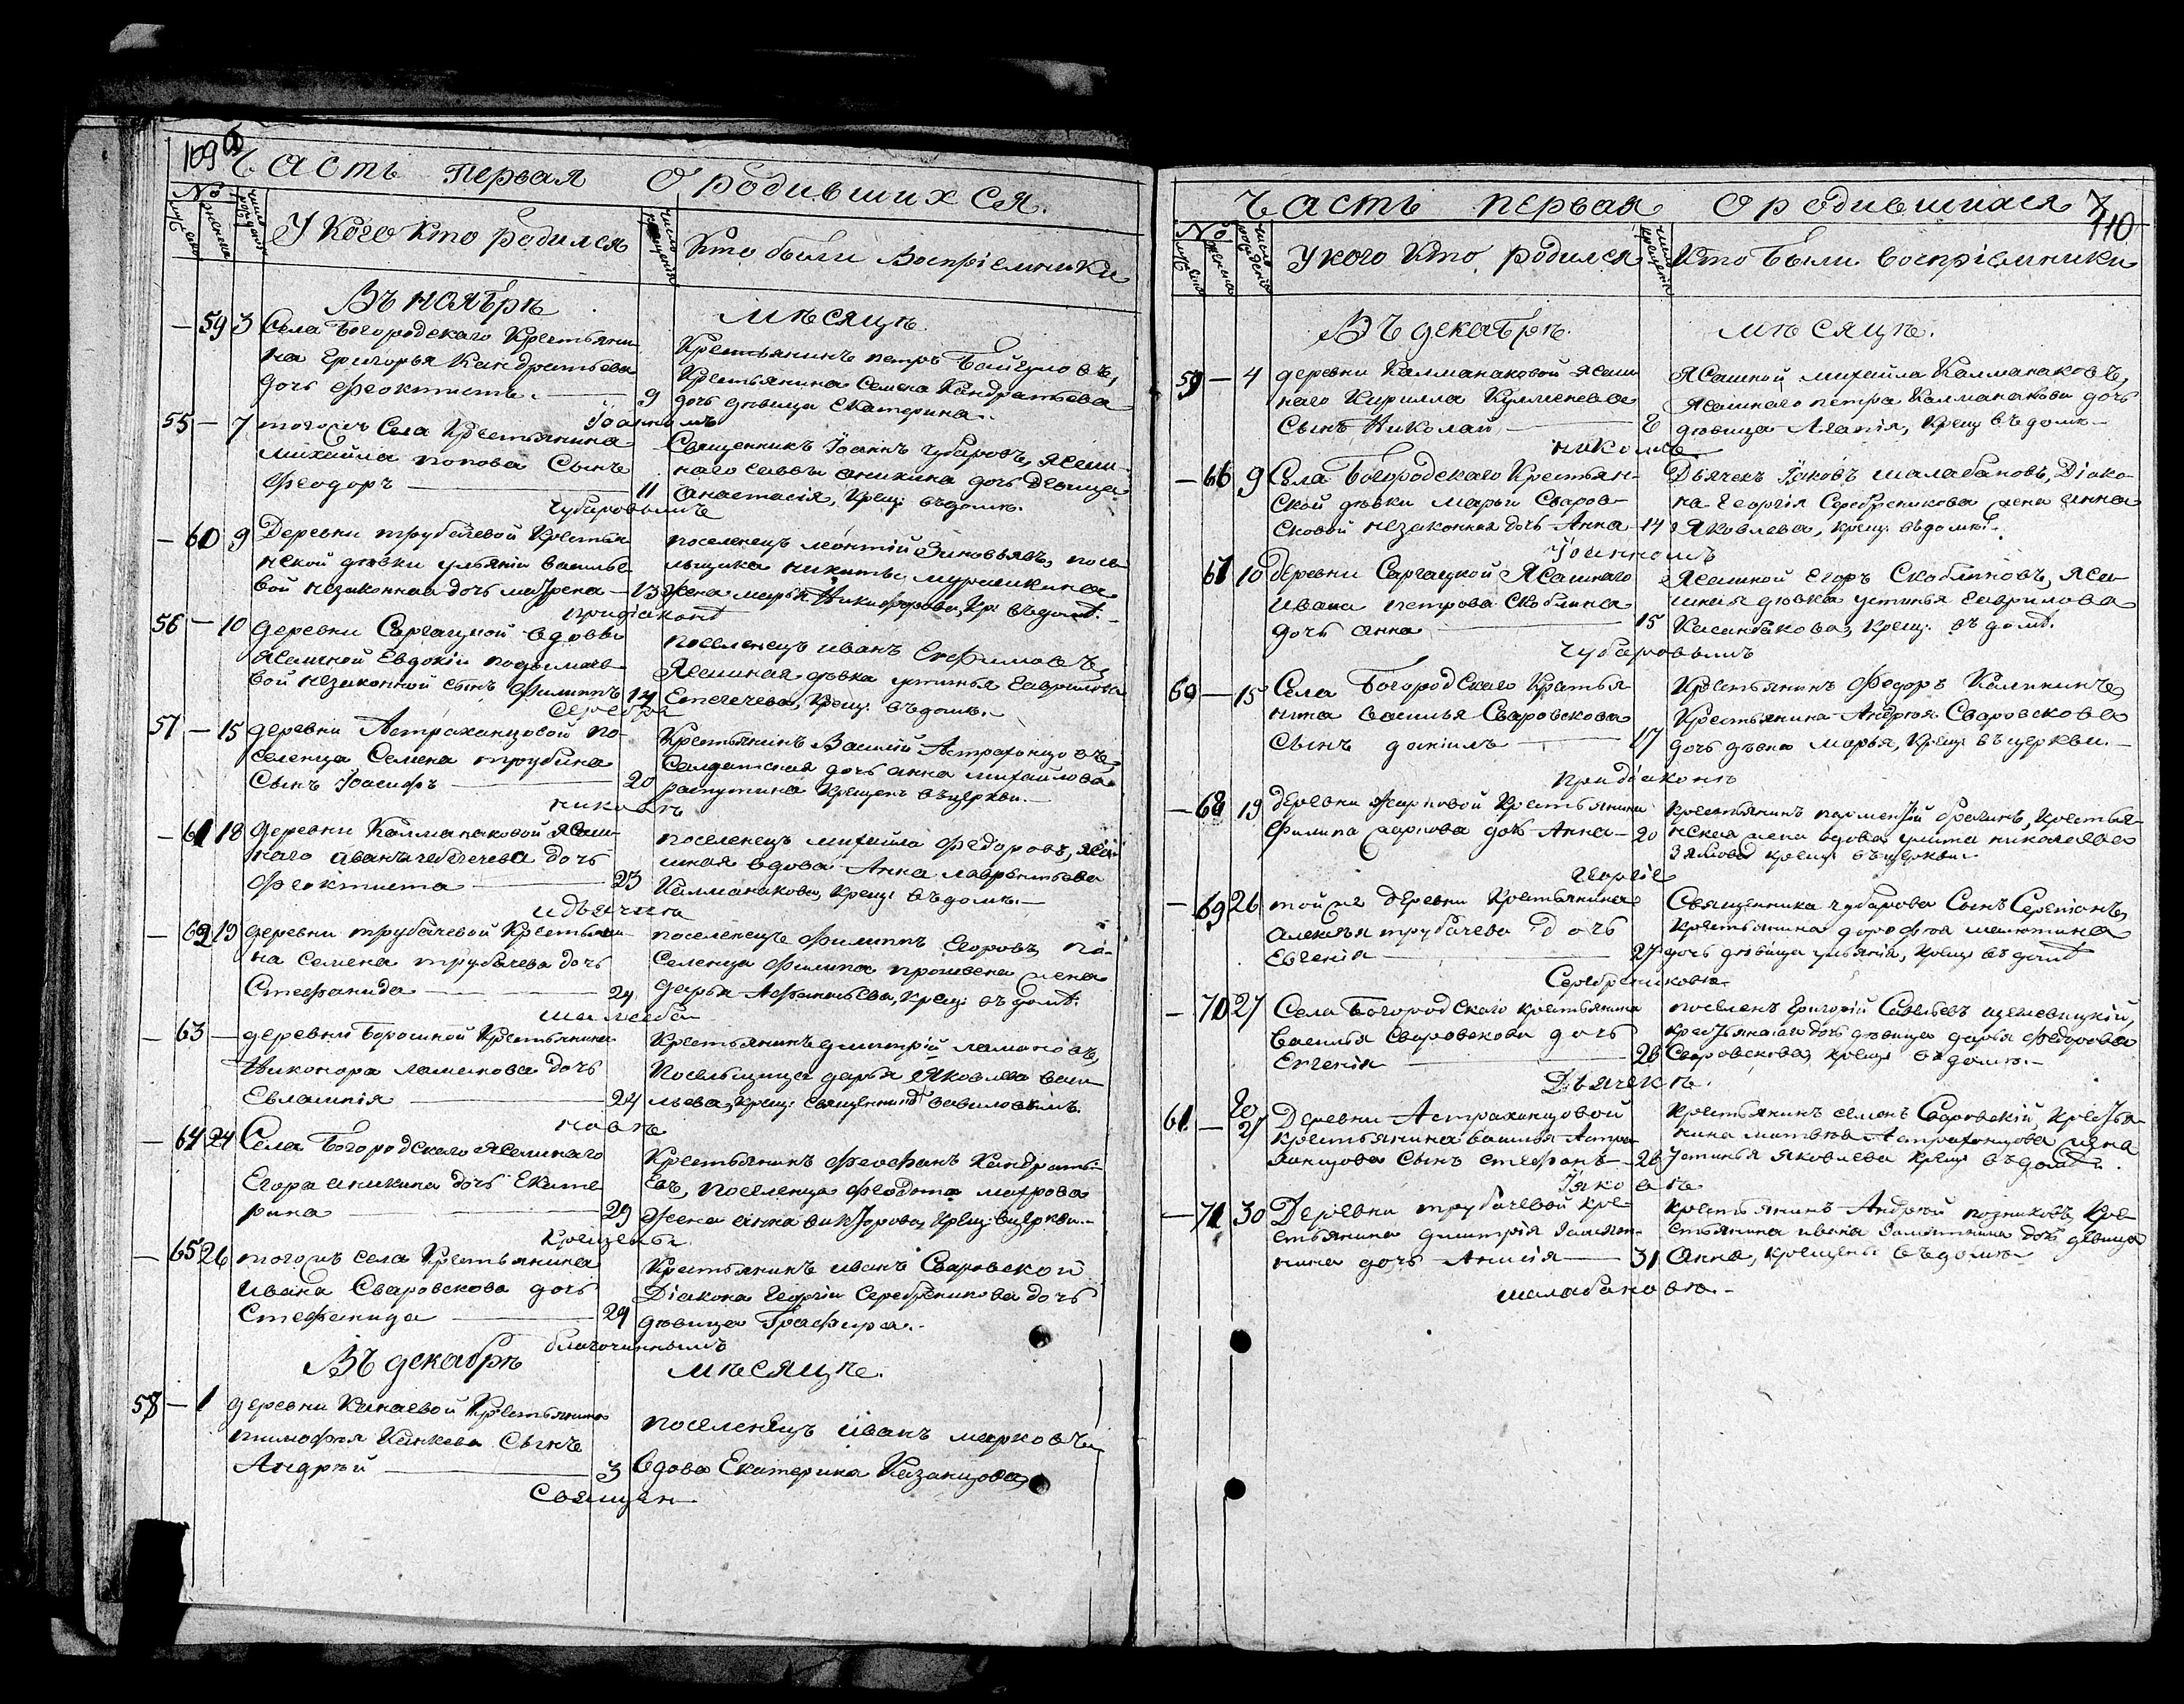 109 об
Часть первая О родившихся.
№ У кого кто родился Кто были восприемники
Въ ноябрѣ мѣсяцѣ.
— 59 3 Села Богородскаго Крестьяни-
на Григорья Кандратьева
дочь Феоктиста. — 9
Крестьянинъ петръ Байгуловъ,
Крестьянина Семена Кандратьева
дочь дѣвица Екатерина.
Іоанномъ
55 — 7 тогожъ Села Крестьянина
Михайла попова Сынъ
Феодоръ — 11
Священникъ Іоаннъ Чубаровъ, ясаш-
наго саввы аникина дочь девица
анастасія, Крещ: въ домѣ.
Чубаровымъ
— 60 9 Деревни трубачевой Крестьян-
нской дѣвки ульяніи василье-
вой незаконная дочь матрена — 13
поселенецъ леонтій Зиновьевъ, посе-
льщика никиты мурашкина
жена марья Никифорова, Кр: въ домѣ.
придіаконѣ
56 — 10 деревни Саргацкой вдовы
ясашной Евдокіи
вой незаконной сынъ Филиппъ 14
поселенецъ иванъ Ефимовъ,
Ясашная дѣвка устинья гаврилова
Крещ: въ домѣ.
Серебре
57 — 15 деревни Астраханцовой по-
селенца Семена трубина
Сынъ Іоасифъ — 20
Крестьянинъ Василій Астраханцовъ,
Салдатская дочь анна михайлова
распутина Крещенъ въ церкви.
никовъ
— 61 18 деревни Калманаковой ясаш-
наго дочь
Феоктиста — 23
поселенецъ михайла Федоровъ, яса-
шная вдова Анна лаврентьева
Калманакова, Крещ: въ домѣ.
идьячка
— 62 19 деревни трубачевой Крестьяни-
на Семена трубачева дочь
Стефанида — 24
поселенецъ Филиппъ Егоровъ, по-
селенца Филипа жена
дарья Афанасьева, крещ: въ домѣ.
шалаба
— 63 — деревни Борошной Крестьянина
Никонора ламанова дочь
Евлампія — 24
Крестьянинъ димитрій ламановъ,
Посельщица дарья яковлева васи-
льева, крещ: священникѣ вавиловымъ.
новѣ
— 64 24 Села Богородскаго ясашнаго
Егора аникина дочь Екате-
рина — 29
Крестьянинъ Феофанъ Кандрать-
евъ, поселенца Феодота
жена анна викторова, крещ: въ церкви.
Крещены
— 65 26 тогожъ села Крестьянина
Ивана Сваровскова дочь
Стефанида — 29
Крестьянинъ иванъ Сваровской
Діакона георгія Серебреникова дочь
дѣвица Графира.
благочиннымъ
Въ декабрѣ мѣсяцѣ.
58 — 1 деревни Кинаевой Крестьянина
тимофея Сынъ
Андрѣй — 3
поселенецъ иванъ марковъ,
вдова Екатерина Казанцова,
Священ
Часть первая О родившихся
110
№ У кого кто родился Кто были восприемники
Въ декабрѣ мѣсяцѣ.
59 — 4 деревни Калманаковой ясаш-
наго Кирилла
Сынъ Николай — 8
Ясашной михайла Калманаковъ,
Ясашнаго петра Калманакова дочь
дѣвица Агапія, Крещ: въ домѣ.
никомъ
— 66 9 Села Богородскаго Крестьян-
ской дѣвки Марьи Сваров-
сковой незаконная дочь Анна — 14
Дьячекъ Іаковъ шалабановъ, Діако-
на георгія Серебреникова жена анна
Яковлева, крещ: въ домѣ.
Іоанномъ
67 10 деревни Саргацкой Ясашнаго
ивана петрова Скоблина
дочь анна — 15
Ясашной егоръ Скоблиновъ, яса-
шная дѣвка устинья гаврилова
крещ: въ домѣ.
Чубаровымъ
60 — 15 Села Богородскаго Крестья-
нина василья Сваровскова
Сынъ даніилъ — 17
Крестьянинъ Федоръ Калининъ,
Крестьянина Андрея Сваровскова
дочь дѣвка марья, Крещ: въ церкви.
придіаконѣ
— 68 19 деревни Жарковой Крестьянина
филипа жаркова дочь Анна — 20
крестьянинъ парменъ , Крестья-
нская жена вдова николаева
крещ: въ церкви.
георгіе
— 69 26 той же деревни крестьянина
Алексѣя трубачева дочь
Евгенія — 27
Священника чубарова Сынъ Серапіонъ,
Крестьянина дорофея малютина
дочь дѣвица ульянія, крещ: въ домѣ
Серебрениковѣ
— 70 27 Села Богородскаго крестьянина
василья Сваровскова дочь
Евгенія — 28
поселенъ григорій Савельевъ ,
крестьянская дочь дѣвица дарья федорова
Сваровскова, крещ: въ домѣ.
Дьячекѣ.
61 — 20 27 Деревни Астраханцовой
крестьянина василья Астра-
ханцова сынъ стефанъ — 28
крестьянинъ семенъ Сваровскій, Крестья-
нина матвѣя Астраханцова жена
Устинья яковлева крещ: въ домѣ.
Іяковѣ
— 71 30 Деревни трубачевой кре-
стьянина димитрія Замят-
нина дочь Анисія — 31
крестьянинъ Андрей позняковъ, Кре-
стьянина ивана Замятнина дочь дѣвица
Анна, крещены въ домѣ
шалабановѣ.